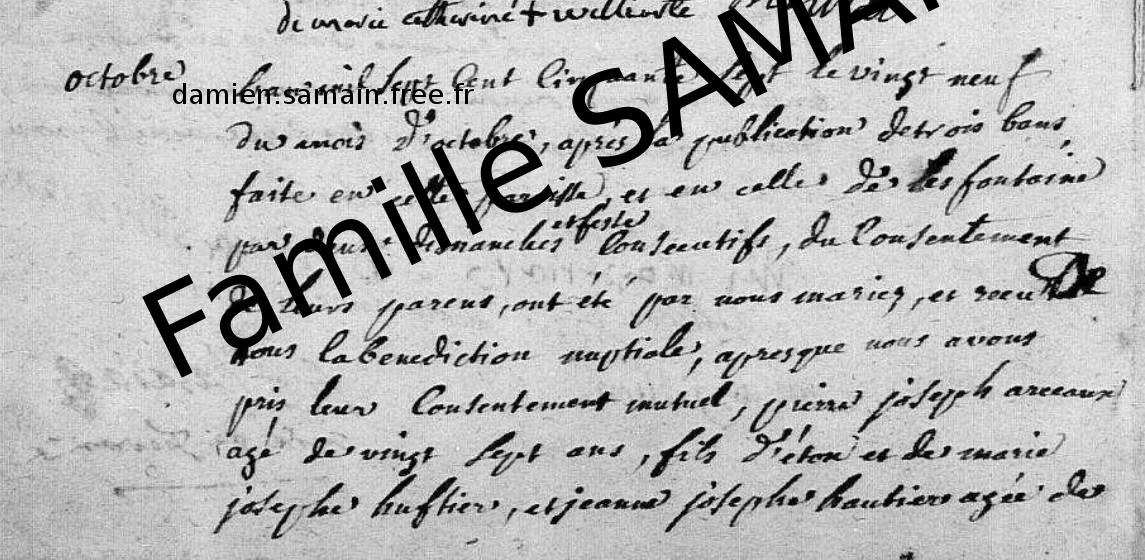 de marie catherine + willemotte
octobre
L'an mil sept Cent Cinquante sept le vingt neuf
damien.samain.free.fr
Famille SAMA
du mois d'octobre, après la publication de trois bans,
faite en cette paroisse, et en celle de les fontaine
et feste
par deux dimanches Consecutifs, du Consentement
de leurs parens, ont été par nous mariez, et recu de
nous la benediction nuptiale, apres que nous avons
pris leur Consentement mutuel, pierre joseph
agé de vingt sept ans, fils d'éton et de marie
josephe huftier, et jeanne josephe hautier agée de